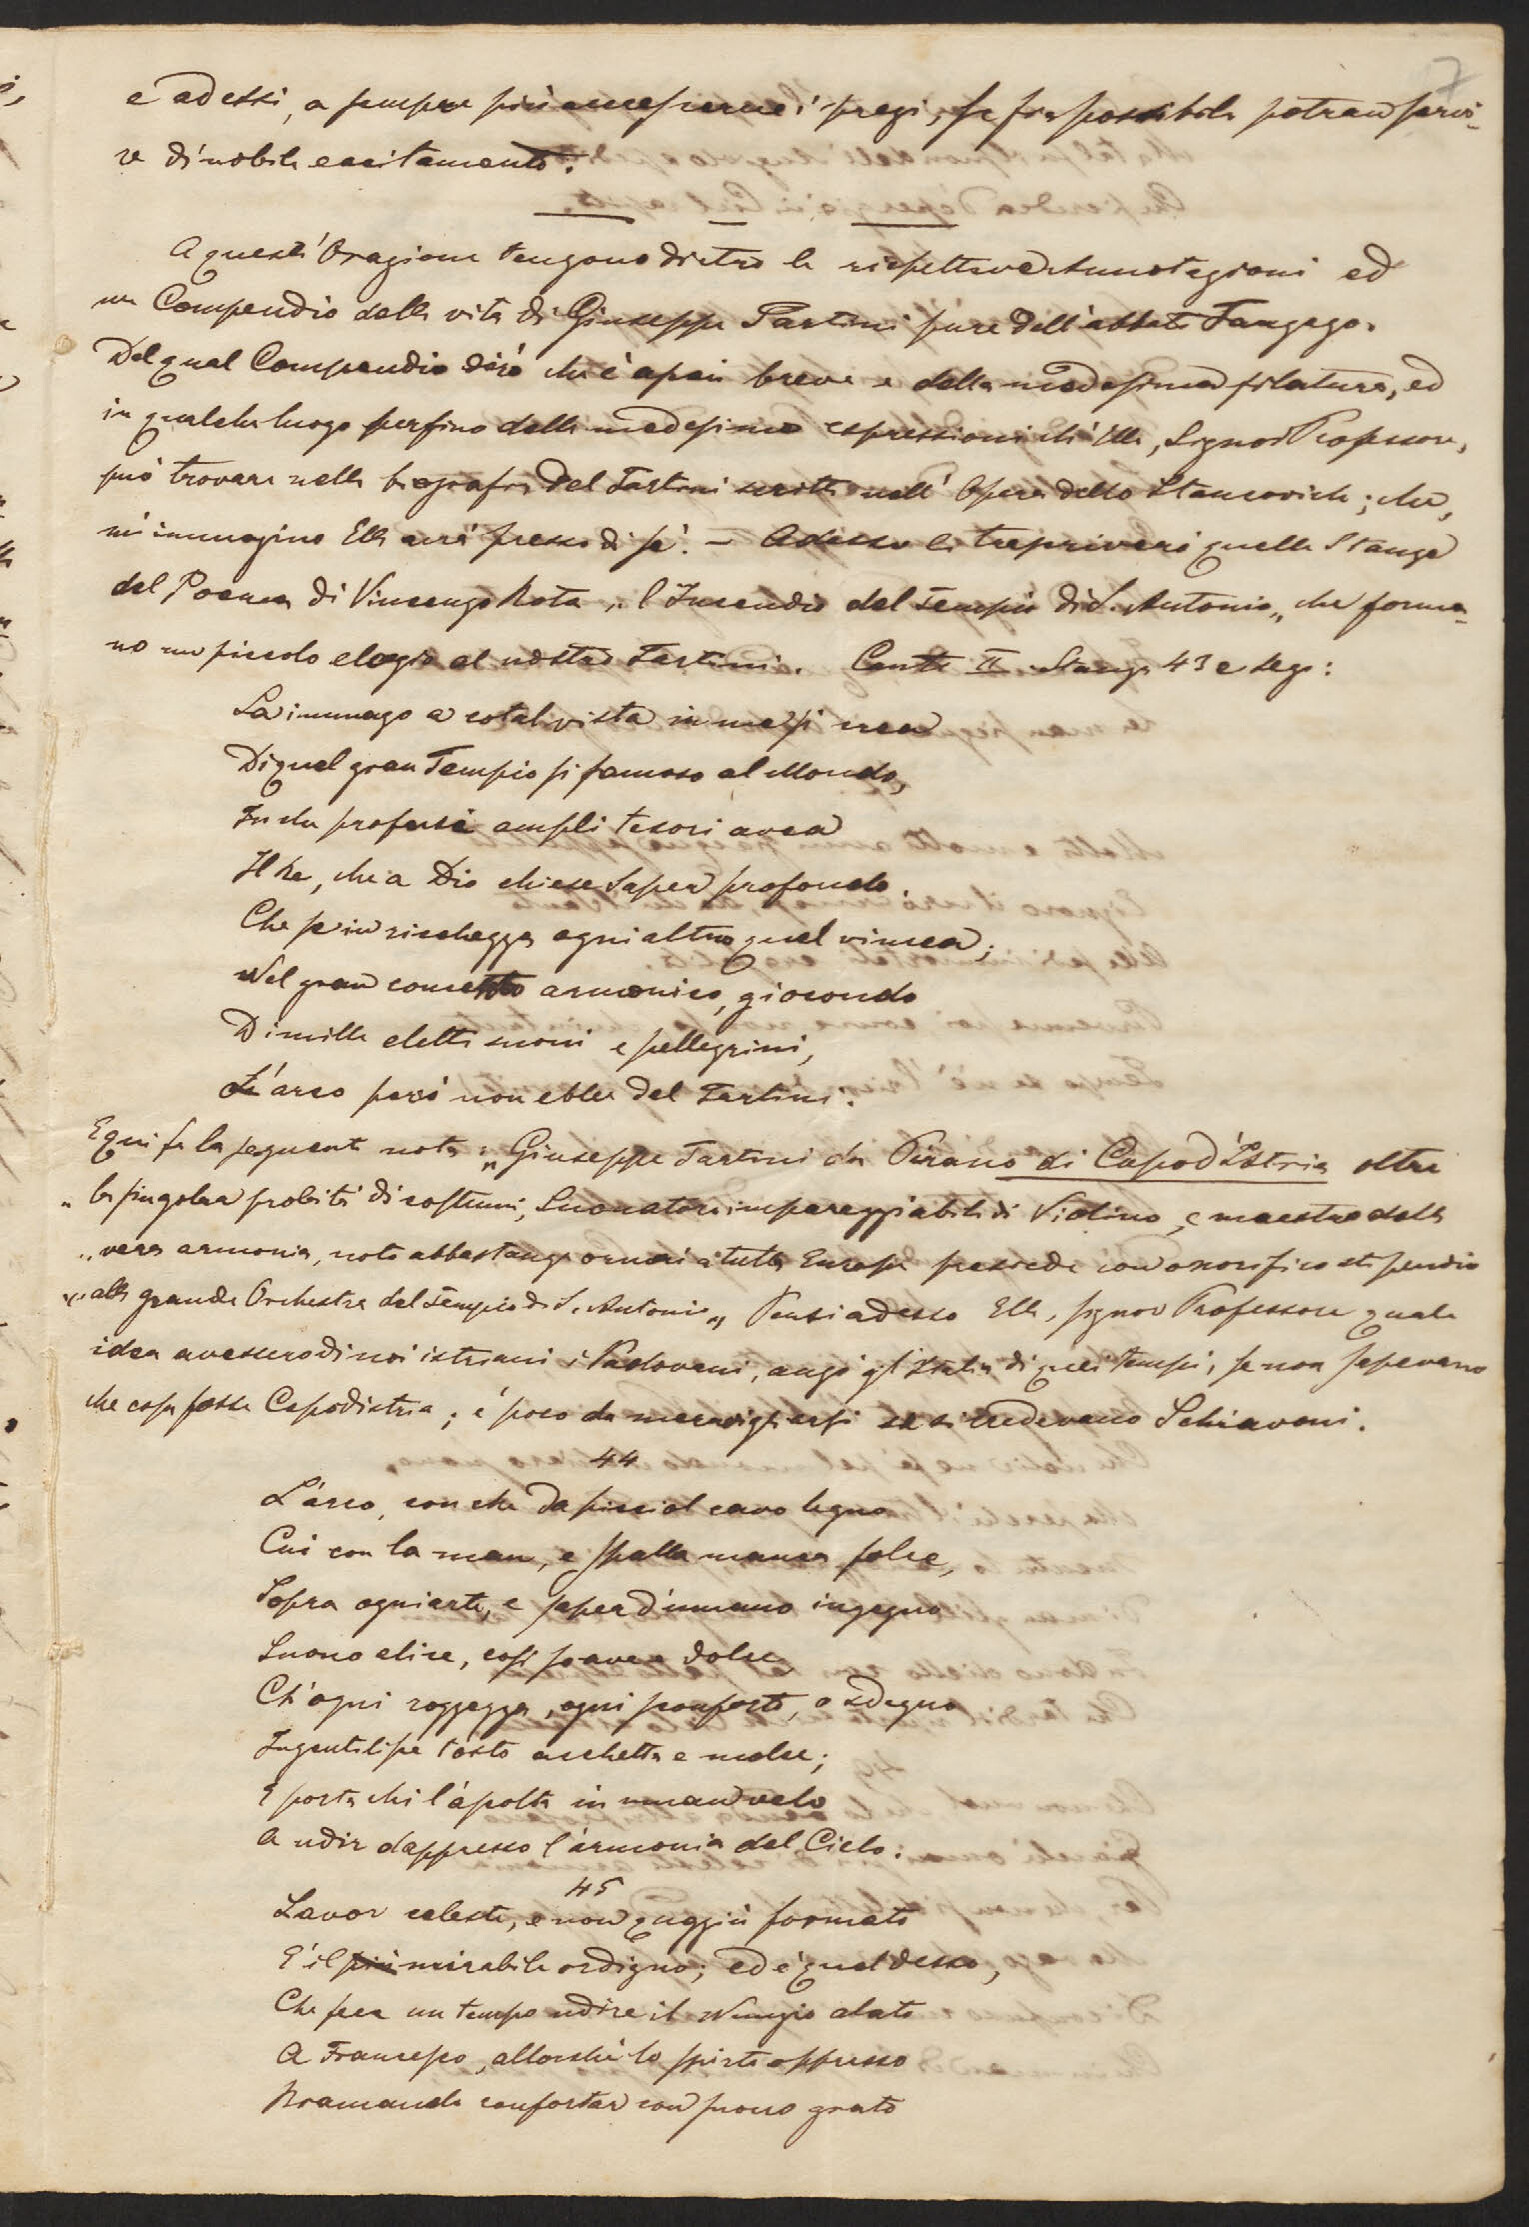 7
e ad essi, a sempre più accrescerne i pregi, se fia possibile potran servi-
re di nobile eccitamento.
A quest'Orazione tengono dietro le rispettive Annotazioni ed
un Compendio della vita di Giuseppe Tartini pure dell'abbate Fanzago.
Del qual Compendio dirò ch'è assai breve e della medesima filatura, ed
in qualche luogo perfino delle medesime espressioni ch'Ella, Signor Professore,
può trovare nella biografia del Tartini scritta nell'Opera dello Stancovich; che,
m'immagino Ella avrà presso di sè. – Adesso le trascriverò quelle Stanze
del Poema di Vincenzo Rota „ l'Incendio del Tempio di S. Antonio „ che forma-
no un piccolo elogio al nostro Tartini. Canto II Stanza 43 e seg:
La immago a cotal vista in me si crea
Di quel gran Tempio si famoso al Mondo,
In che profusi ampli tesori avea
Il Re, che a Dio chiese saper profondo.
Che se in ricchezza ogni altro quel vincea;
Nel gran concetto armonico, giocondo
Di mille eletti suoni e pellegrini,
L'arco però non ebbe del Tartini.
E qui fa la seguente nota: „ Giuseppe Tartini da Pirano di Capo d'Istria oltre
„ la singolar probità di costumi, Suonatore impareggiabile di Violino, e maestro della
„ vera armonia, noto abbastanza ormai a tutta Europa presiede con onorifico stipendio
„ alla grande Orchestra del Tempio di S. Antonio „ Pensi adesso Ella, signor Professore quale
idea avessero di noi istriani i Padovani, anzi gl'Italia di quei tempi, se non sapevano
che cosa fosse Capodistria; è poco da meravigliarsi se si credevano Schiavoni.
44
L'arco, con che da picciol cavo legno
Cui con la man, e spalla manca folce,
Sopra ogni arte, e saper d'umano ingegno
Suono elice, così soave e dolce,
Ch'ogni rozzezza, ogni sconforto, o sdegno
Ingentilisce tosto accheta e molce;
E porta chi l'ascolta in uman velo
A udir dappresso l'armonia del Cielo.
45
Lavor celeste, e non quaggiù formato
E' il più mirabile ordigno; ed è quel desso,
Che fece un tempo udire il Nunzio alato
A Francesco, allorchè lo spirto oppresso
Bramando confortar con suono grato